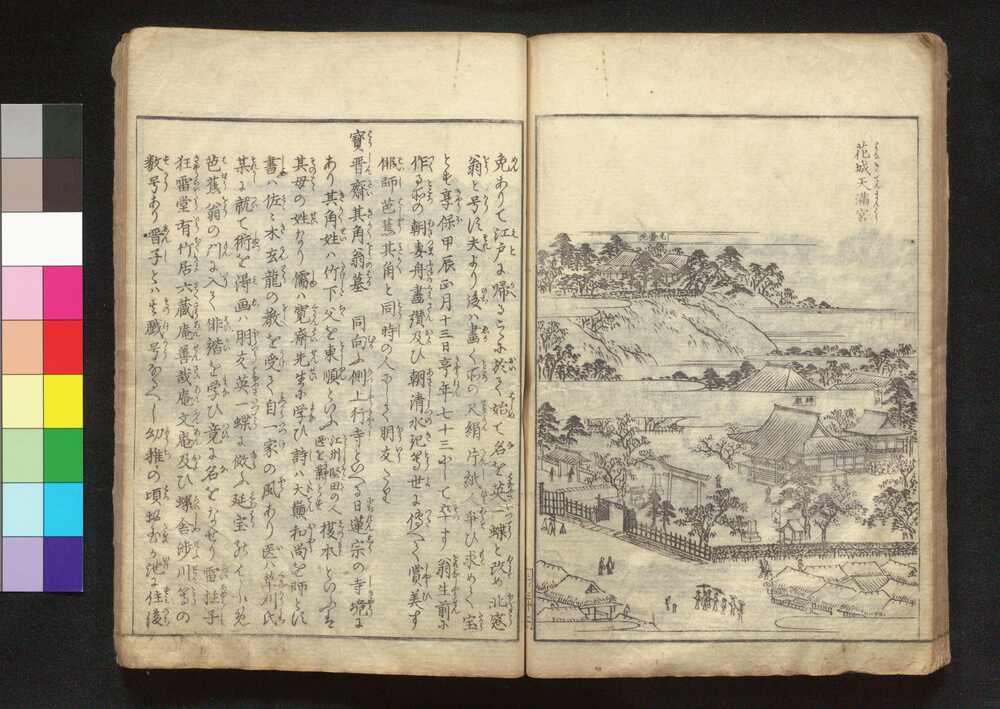 花城天満宮
免ありて江戸に帰ることに於て始て名を英一蝶と改め北窓
翁と号す夫より後ハ画く所の尺絹片紙争ひ求めて宝
とす享保甲辰正月十三日享年七十三にして卒す翁生前に
作る所の朝妻舟畫讃及ひ朝清水記等世に傳へて賞美す
俳師芭蕉其角と同時の人にして朋友たり
寶晋齋其角翁墓 同向ふ側上行寺といへる日蓮宗の寺境に
あり其角姓ハ竹下父を東順といふ 江州堅田の人 榎本といふは
其母の姓なり儒ハ寛斎先生に学ひ詩ハ大巓和尚を師とす
書ハ佐々木玄龍の教を受て自一家の風あり医ハ草刈氏
某に就て術を得画ハ朋友英一蝶に倣ふ延宝のはしめ
芭蕉翁の門に入て俳諧を学ひ竟に名をなせり雷柱子
狂雷堂有竹居六蔵庵善哉庵文庵及ひ螺舎渉川等の
数号あり晋子とハ其戯号なるへし幼稚の頃お玉か池に住後